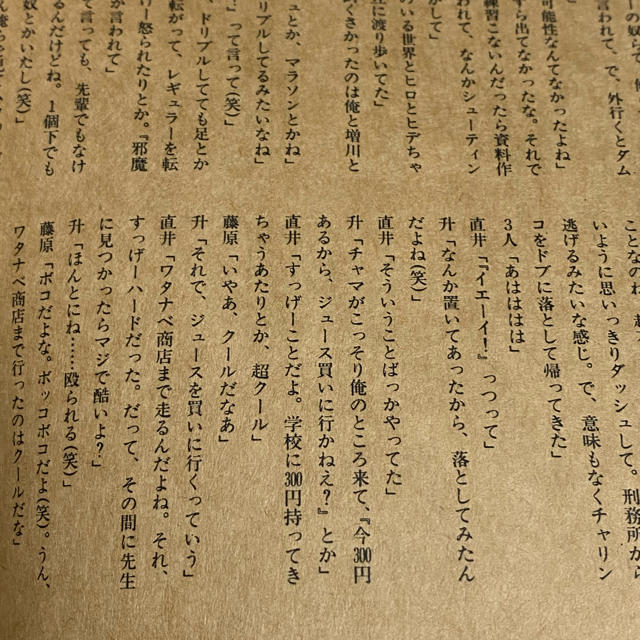 ーの奴らで、俺
言われて、で、外行くとダム
可能性なんてなかったよね」
すら出てなかったな。それで
練習こないんだったら資料作
われて、なんかシューティン
かして」
のいる世界とヒロとヒデちゃ
に渡り歩いてた」
くさかったのは俺と増川と
ュとか、マラソンとかね」
リブルしてるみたいなね」
って言って(笑)」
、ドリブルしてても足とか
転がって、レギュラーを転
ー怒られたりとか。『邪魔
か言われて」
て言っても、先輩でもなけ
るんだけどね。1個下でも
奴とかいたし(笑)」
ことなのね
いように思いっきりダッシュして。刑務所から
逃げるみたいな感じ。で、意味もなくチャリン
コをドブに落として帰ってきた」
3人「あはははは」
直井「『イエーイ!』っつって」
升「なんか置いてあったから、落としてみたん
だよね(笑)」
直井「そういうことばっかやってた」
升「チャマがこっそり俺のところ来て、『今300円
あるから、ジュース買いに行かねえ?』とか」
直井「すっげーことだよ。学校に300円持ってき
ちゃうあたりとか、超クール」
藤原「いやあ、クールだなあ」
升「それで、ジュースを買いに行くっていう」
直井「ワタナベ商店まで走るんだよね。それ、
すっげーハードだった。だって、その間に先生
に見つかったらマジで酷いよ?」
升「ほんとにね……殴られる(笑)」
藤原「ボコだよな。ボッコボコだよ(笑)。うん、
ワタナベ商店まで行ったのはクールだな」